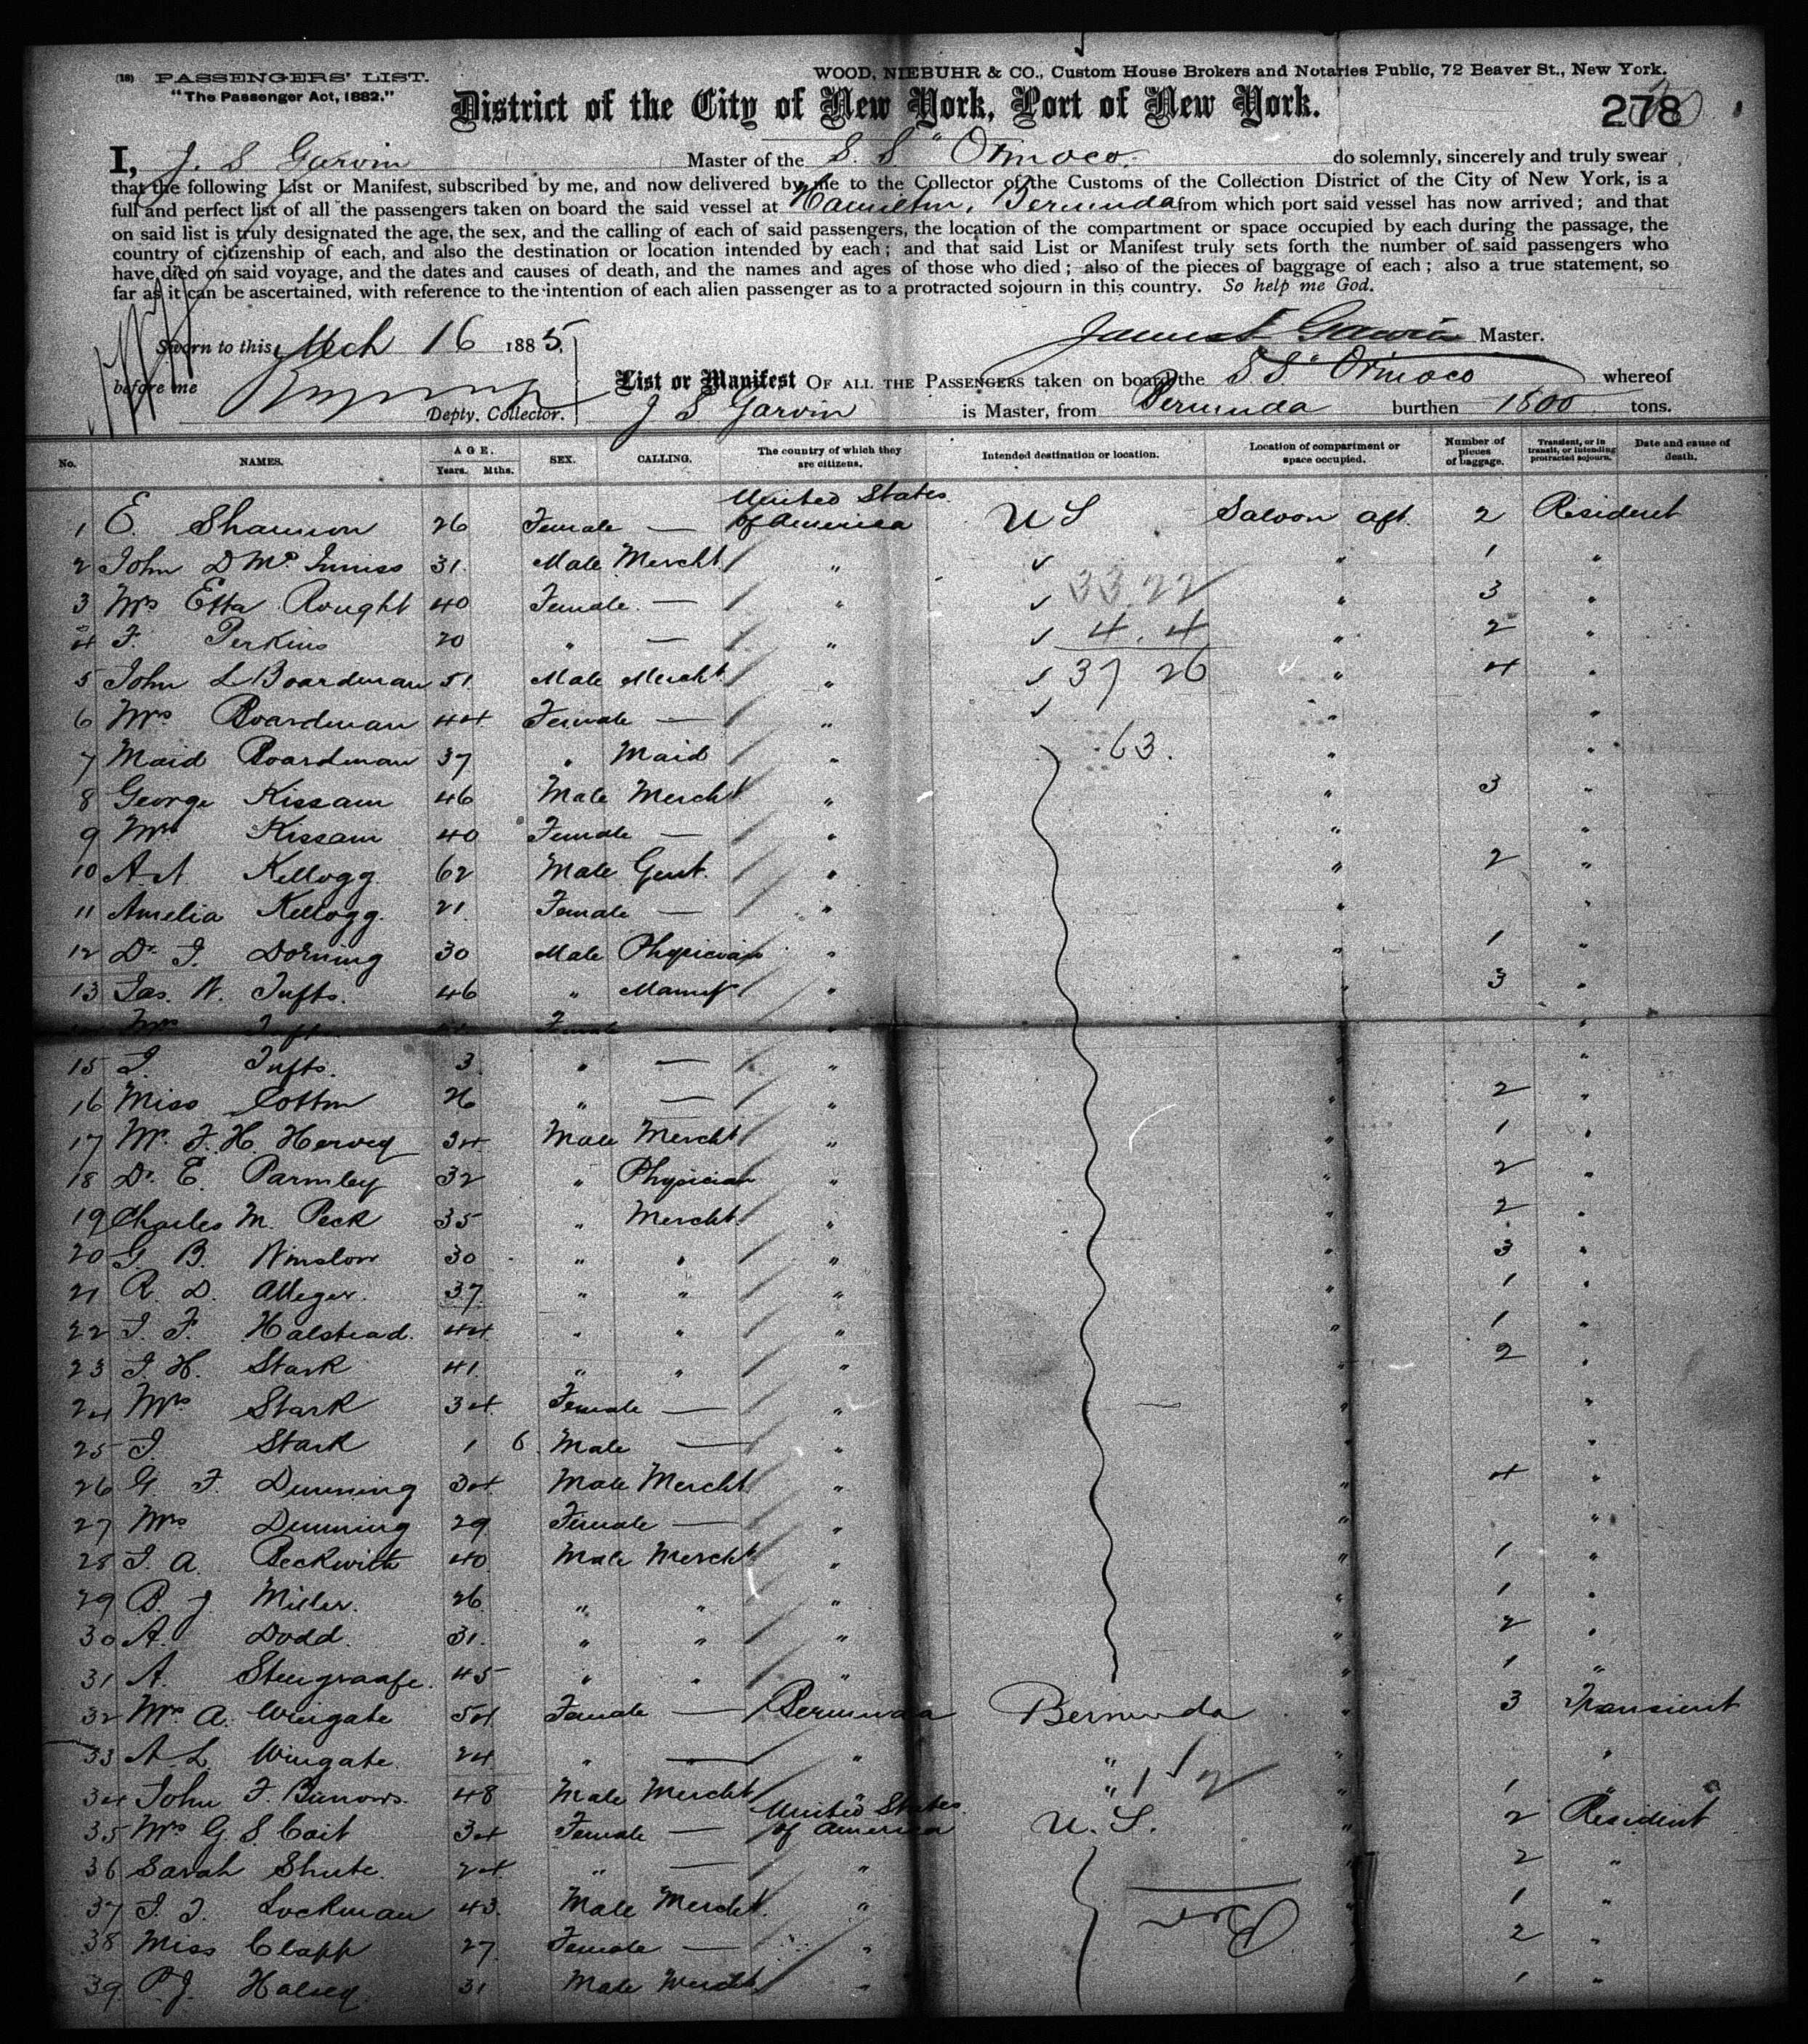 (18) PASSENGERS' LIST. WOOD, NIEBUHR & CO., Custom House Brokers and Notaries Public, 72 Beaver St., New York.
"The Passenger Act, 1882."
District of the City of New York, Port of New York. 278
I, J. S Garvin Master of the S. S "Orinoco. do solemnly, sincerely and truly swear
that the following List or Manifest, subscribed by me, and now delivered by me to the Collector of the Customs of the Collection District of the City of New York, is a
full and perfect list of all the passengers taken on board the said vessel at Hamilton, Bermuda from which port said vessel has now arrived; and that
on said list is truly designated the age, the sex, and the calling of each of said passengers, the location of the compartment or space occupied by each during the passage, the
country of citizenship of each, and also the destination or location intended by each; and that said List or Manifest truly sets forth the number of said passengers who
have died on said voyage, and the dates and causes of death, and the names and ages of those who died; also of the pieces of baggage of each; also a true statement, so
far as it can be ascertained, with reference to the intention of each alien passenger as to a protracted sojourn in this country. So help me God.
Sworn to this Mch 16 1885, James S Garvin Master.
before me List or Manifest OF ALL THE PASSENGERS taken on board the S S "Orinoco whereof
Depty. Collector. J S Garvin is Master, from Bermuda burthen 1800 tons.
No. NAMES. AGE. Years. Mths. SEX. CALLING. The country of which they are citizens. Intended destination or location. Location of compartment or space occupied. Number of pieces of baggage. Transient, or in transit, or intending protracted sojourn. Date and cause of death.
1 E. Shannon 26 Female — United States of America U S Saloon aft. 2 Resident
2 John D McInniss 31. Male Mercht " ✓ " 1 "
3 Mrs Etta Rought 40 Female — " ✓ 33.22 " 3 "
4 F. Perkins 20 " — " ✓ 4.4 " 2 "
5 John L Boardman 51. Male Mercht " ✓ 37 26 " 4 "
6 Mrs Boardman 44 Female — " ✓ " "
7 Maid Boardman 37 " Maid " 63. " "
8 George Kissam 46 Male Mercht " " 3 "
9 Mrs Kissam 40 Female — " " "
10 A. A. Kellogg 62 Male Gent. " " 2 "
11 Amelia Kellogg. 21. Female — " " "
12 Dr. J. Dorning 30 Male Physician " " 1 "
13 Jas. W. Tufts. 46 " Manuf " " 3 "
Mrs Tufts Female — " "
15 J. Tufts. 3 " — " " "
16 Miss Cotton 26 " — " " 2 "
17 Mr. F. H. Hervey 34 Male Mercht " " 1 "
18 Dr. E. Parmley 32 " Physician " " 2 "
19 Charles M. Peck 35 " Mercht. " " 2 "
20 G. B. Winslow 30 " " " " 3 "
21 R. D. Alleger. 37. " " " " 1 "
22 J. F. Halstead. 44 " " " " 1 "
23 J. H. Stark 41. " " " " 2 "
24 Mrs Stark 34. Female — " " "
25 J. Stark 1 6. Male — " " "
26 G. F. Dunning 34 Male Mercht " " 4 "
27 Mrs Dunning 29 Female — " " "
28 J. A. Beckwith 40. Male Mercht " " 1 "
29 B. J. Miller. 26. " " " " 1 "
30 A. Dodd. 31. " " " " 2 "
31 A. Stengraafe. 45 " " " " 1 "
32 Mrs A. Wingate 54. Female — Bermuda Bermuda " 3 Transient
33 A L. Wingate. 24. " — " " " "
34 John F. Burrows. 48 Male Mercht " " 1 2 " 1 "
35 Mrs G. S. Cait 34 Female — United States of America U. S. " 2 Resident
36 Sarah Shute. 24. " — " " 2 "
37 J. J. Lockman 43. Male Mercht. " " 1 "
38 Miss Clapp 27. Female — " " 2 "
39. P. J. Halsey. 31 Male Mercht. " 1 "